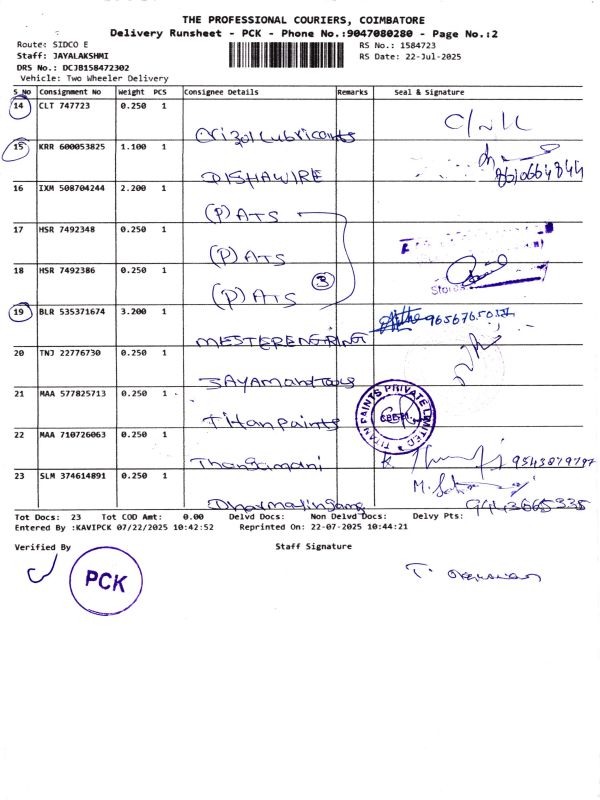 THE PROFESSIONAL COURIERS, COIMBATORE
Delivery Runsheet - PCK - Phone No.:9047080280 - Page No.:2
Route: SIDCO E RS No.: 1584723
Staff: JAYALAKSHMI RS Date: 22-Jul-2025
DRS No.: DCJB158472302
Vehicle: Two Wheeler Delivery
S No Consignment No Weight PCS Consignee Details Remarks Seal & Signature
14 CLT 747723 0.250 1
Orizol Lubricants
15 KRR 600053825 1.100 1
DISHAWIRE 8610664844
16 IXM 508704244 2.200 1
(P) ATS
17 HSR 7492348 0.250 1
(P) ATS
18 HSR 7492386 0.250 1
(P) ATS 3
19 BLR 535371674 3.200 1
MESTERENGRING
20 TNJ 22776730 0.250 1
21 MAA 577825713 0.250 1
Titan Paints TITAN PAINTS PRIVATE LIMITED
22 MAA 710726063 0.250 1
Thangamani 9543879797
23 SLM 374614891 0.250 1
Dharmalingam 9443665335
Tot Docs: 23 Tot COD Amt: 0.00 Delvd Docs: Non Delvd Docs: Delvy Pts:
Entered By :KAVIPCK 07/22/2025 10:42:52 Reprinted On: 22-07-2025 10:44:21
Verified By Staff Signature
PCK